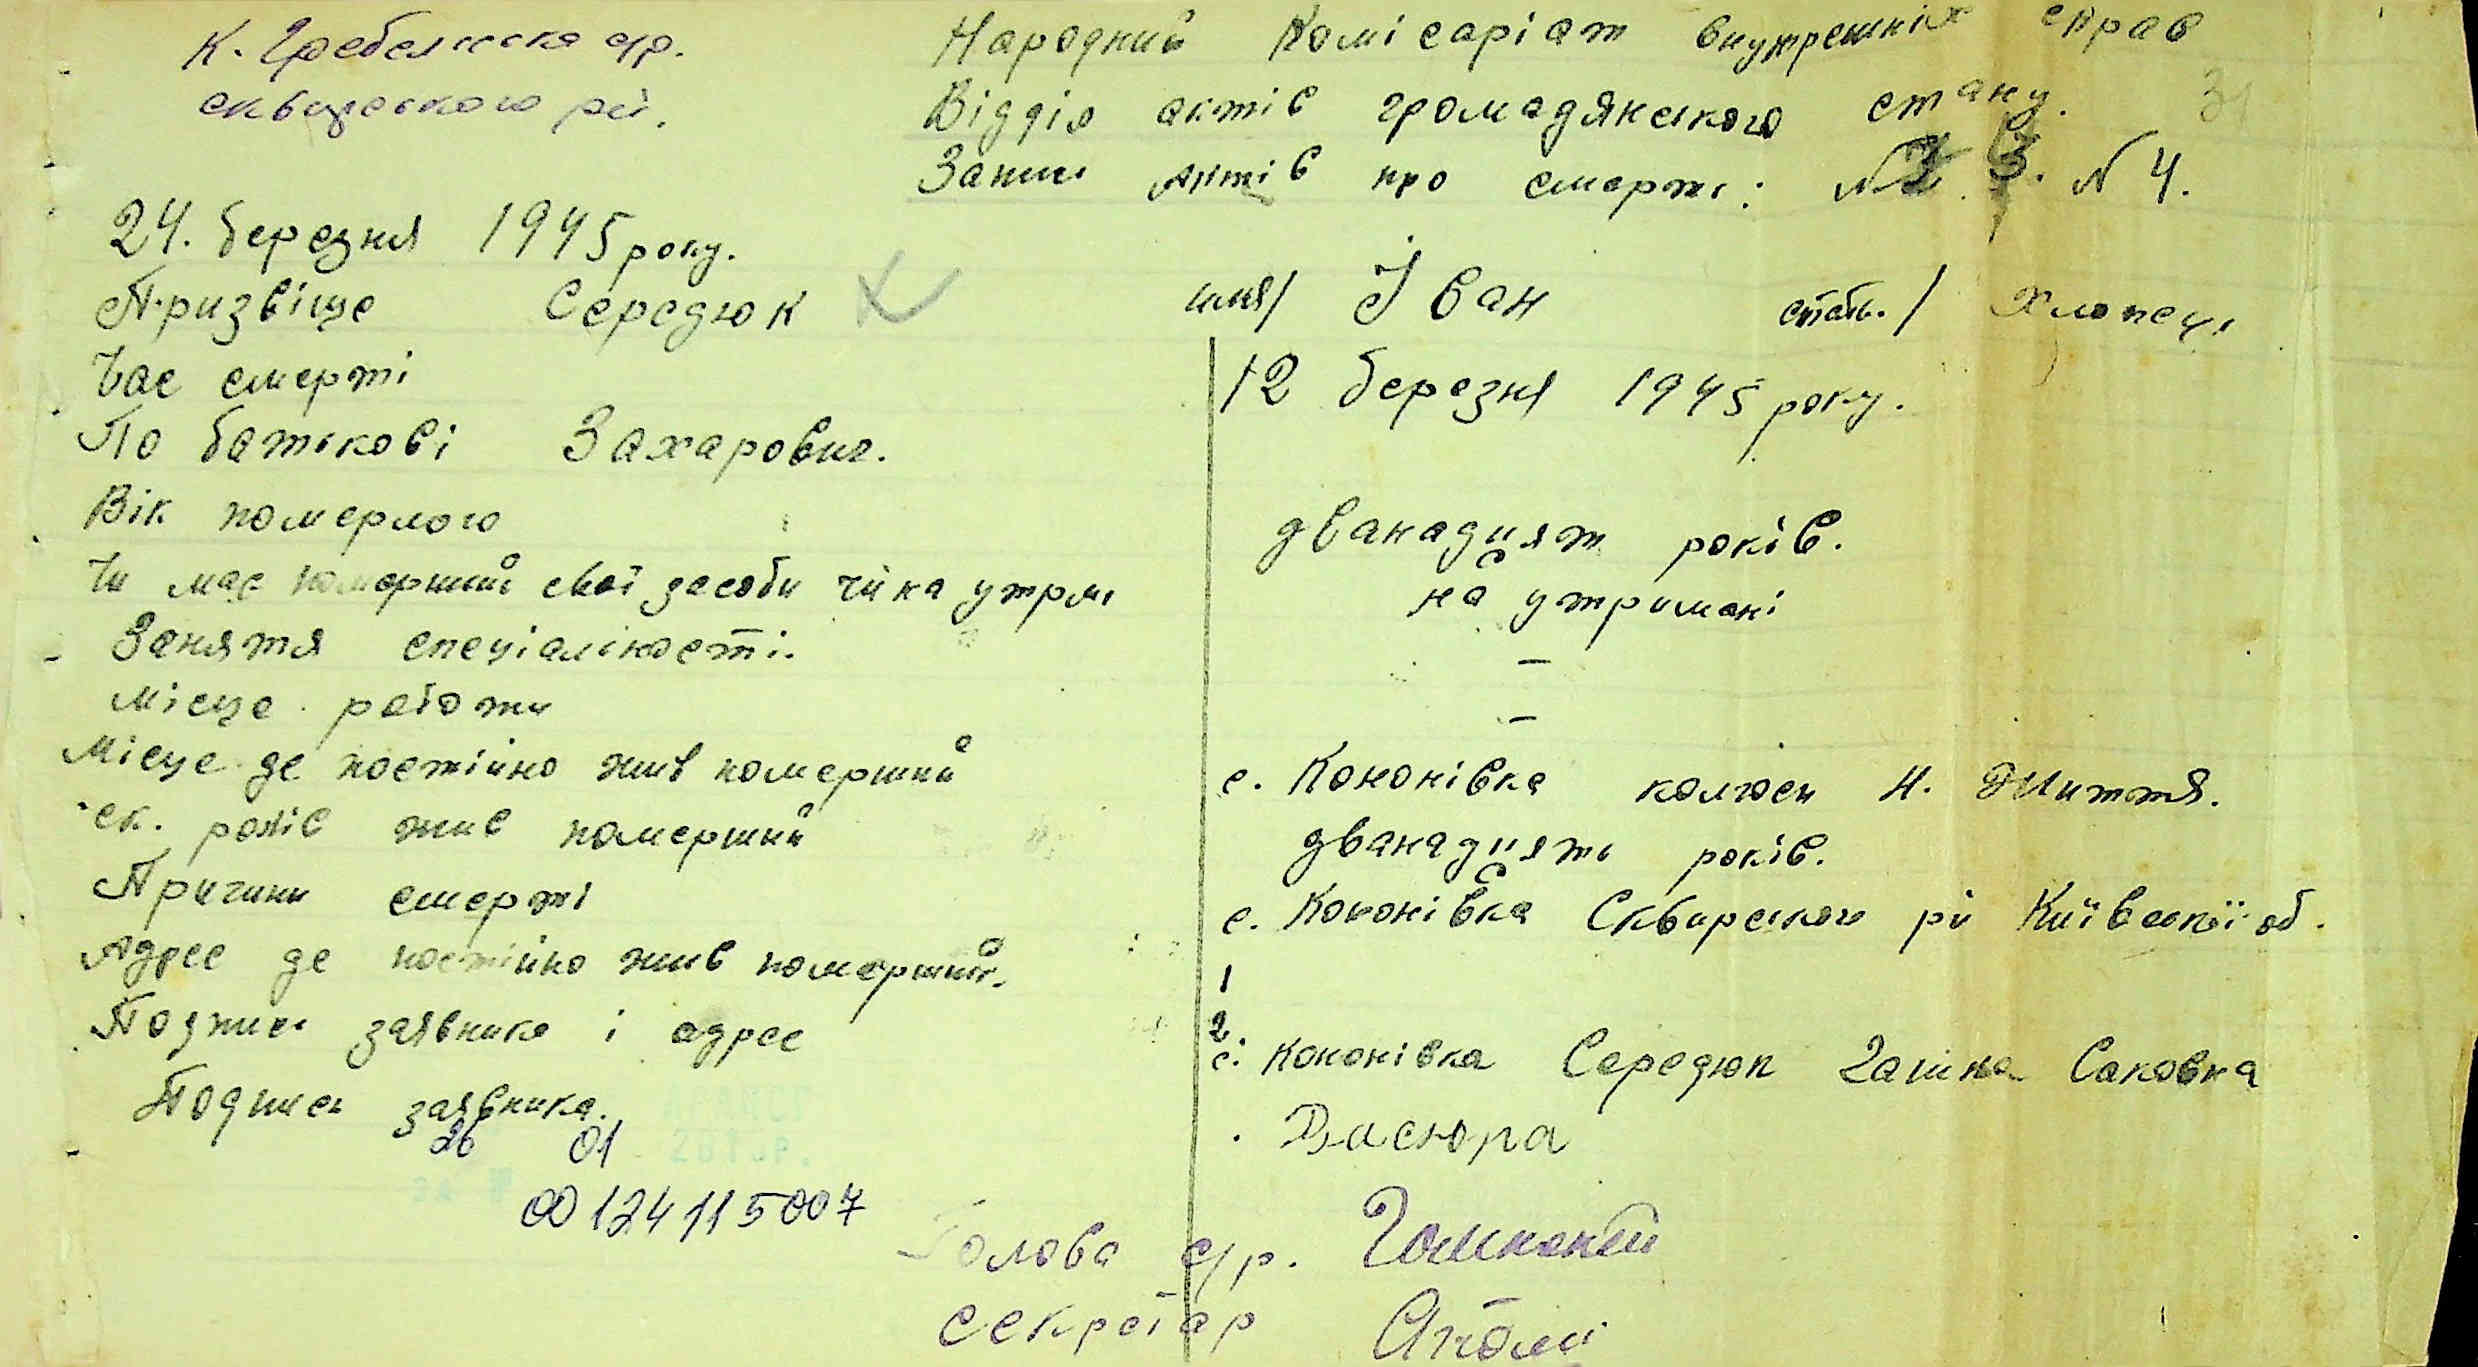 К. Гребельська с/р.
сквирського рй.
Народний Комісаріат внутрешніх справ
Відділ актів громадянського стану.
31
Запис Актів про смерть: N 3. N 4.
24. березня 1945 року.
Призвіще Середюк имя/ Іван стать./ Хлопець
Час смерті 12 березня 1945 року.
По батькові Захарович.
Вік померлого дванадцят років.
Чи має померший свої засоби чи на утрм на утримані
Заняття спеціальності. –
Місце работи –
Місце де постійно жив померший с. Кононівка колгосп Н. Життя.
ск. років жив померший дванадцять років.
Причини смерті
с. Кононівка Сквирського рй Київської об.
Адрес де постійно жив померший.
1
2
Подпись заявника і адрес с. Кононівка Середюк Ганна Саковна
Подпись заявника. Дзасюра
26 01
00124115007
Голова с/р.
секретар